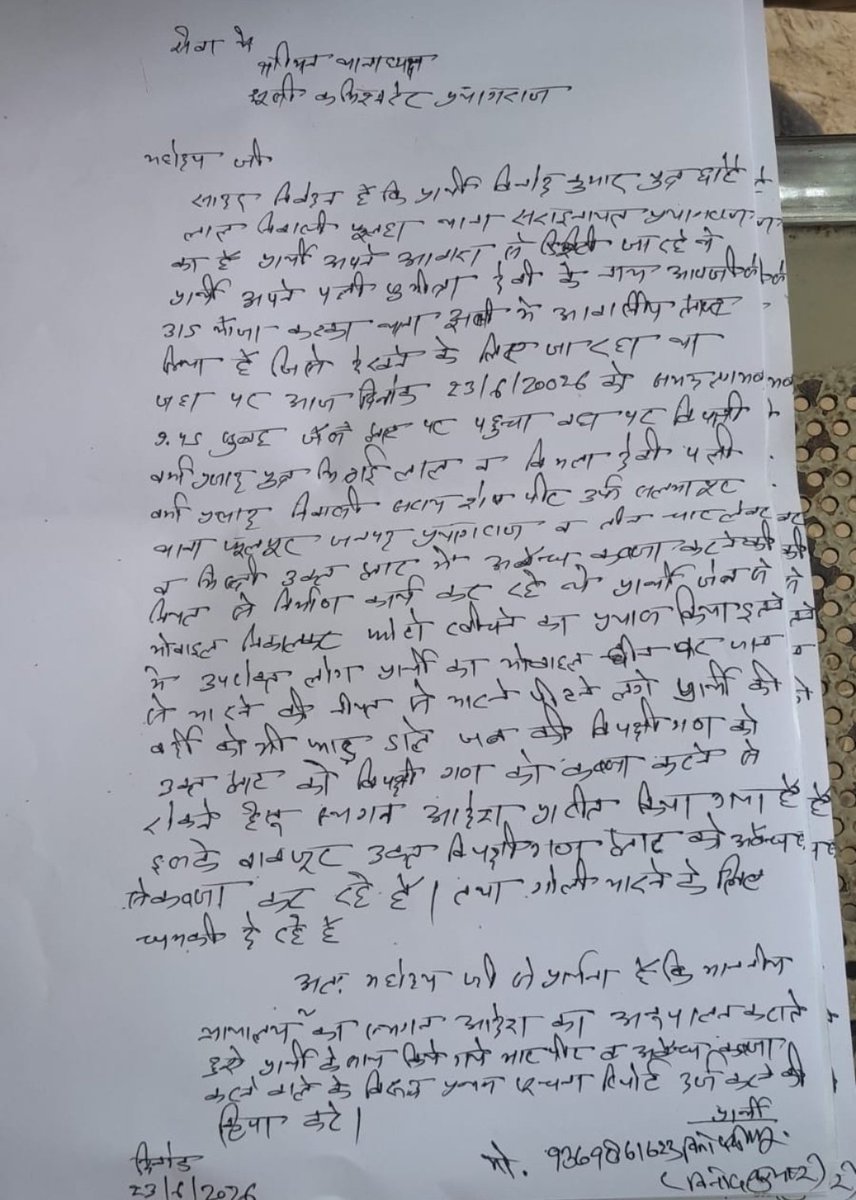 सेवा मे
श्रीमान थानाध्यक्ष
कमिश्नरेट प्रयागराज
महोदय जी
सादर निवेदन है कि प्रार्थी विनोद कुमार पुत्र छोटे
लाल निवाली थाना सरायममरेज प्रयागराज
का है प्रार्थी अपने आवास से जा रहे थे
प्रार्थी अपने पत्नी देवी के नाम
मौजा थाना झूसी मे आवासीय प्लाट
लिया है जिसे देखने के लिए जा रहा था
जहा पर आज दिनांक 23/6/20026 को समय लगभग
9.45 सुबह जैसे प्लाट पर पहुचा वहा पर विपक्षी
वर्मा प्रसाद पुत्र मिठाई लाल व विमला देवी पत्नी
वर्मा प्रसाद निवासी सराय शेख पीर उर्फ
थाना फूलपुर जनपद प्रयागराज व तीन चार लेबर
व मिस्त्री उक्त प्लाट मे अवैध्य कब्जा करने की
नियत से निर्माण कार्य कर रहे थे प्रार्थी जब
मोबाइल निकालकर फोटो खीचने का प्रयास किया इतने
मे उपरोक्त लोग प्रार्थी का मोबाइल छीन कर जान
से मारने की नीयत से मारने पीटने लगे प्रार्थी की
वर्दी को भी फाड़ डाले जब की विपक्षीगण को
उक्त प्लाट को विपक्षी गण को कब्जा करने से
रोकने हेतू स्थगन आदेश पारीत किया गया है
इसके बावजूद उक्त विपक्षीगण प्लाट को अवैध्य
से कब्जा कर रहे है । तथा गोली मारने के लिए
धमकी दे रहे है
अतः महोदय जी से प्रार्थना है कि माननीय
न्यायालय का स्थगन आदेश का अनुपालन कराते
हुये प्रार्थी के साथ किये गये मारपीट व अवैध्य कब्जा
करने वाले के विरूद्ध प्रथम सूचना रिपोर्ट दर्ज करने की
क्रिपा करे ।
प्रार्थी
मो. 9369861623 विनोद कुमार
(विनोद कुमार)
दिनांक
23/6/2026